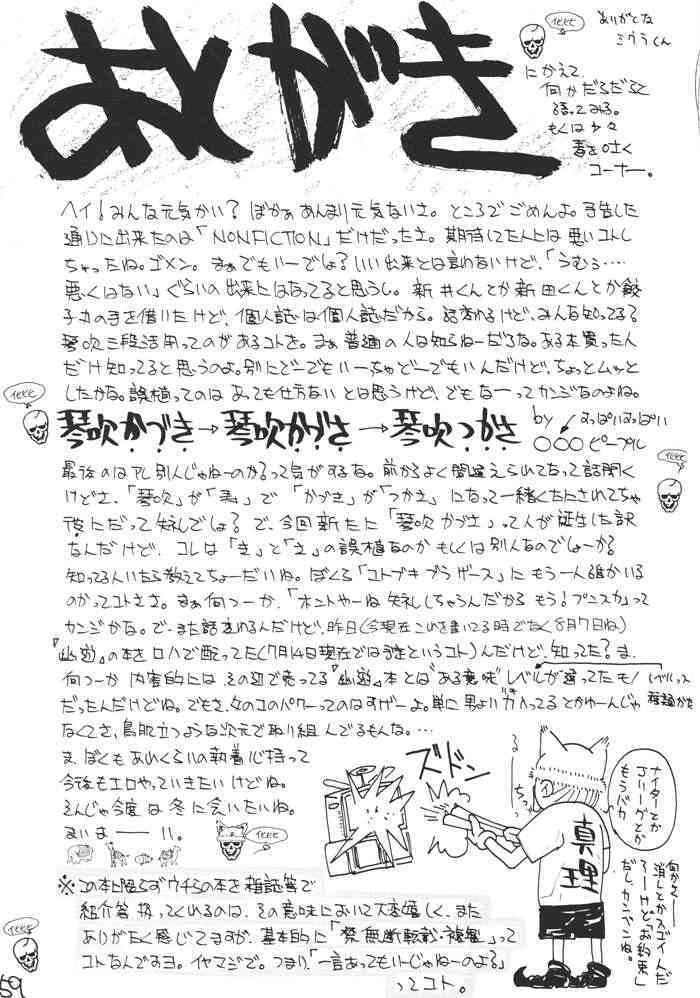 あとがき
ケケケ
ありがとな
ミウラくん
にかえて
何かだらだらと
語ってみる。
もしくは少々
毒を吐く
コーナー。
ヘイ!みんな元気かい?ぼかぁあんまり元気ないさ。ところでごめんよ。予告した
通りに出来たのは「NONFICTION」だけだったさ。期待してた人には悪いコトし
ちゃったね。ゴメン。まぁでもいーでしょ?いい出来とは言わないけど、「うむぅ…
悪くはない」ぐらいの出来にはなってると思うし。新井くんとか新田くんとか餃
子の手を借りたけど、個人誌は個人誌だから。話変わるけど、みんな知ってる?
琴吹三段活用ってのがあるコトを。まぁ普通の人は知らねーだろな。ある本買った人
だけ知ってると思うのよ。別にどーでもいーちゃどーでもいんだけど、ちょっとムッと
したかな。誤植ってのはあっても仕方ないとは思うけど、でもなーってカンジなのよね。
ケケケ
琴吹かづき→琴吹かづさ→琴吹つかさ
by
〇〇〇ピープル
ケケケ
最後のはアレ別人じゃねーのか?って気がするな。前からよく間違えられてるって話聞く
けどさ、「琴吹」が「」で「かづき」が「つかさ」になって一緒くたにされてちゃ
彼にだって失礼でしょ?で、今回新たに「琴吹かづさ」って人が誕生した訳
なんだけど、コレは「き」と「さ」の誤植なのかもしくは別人なのでしょーか?
知ってる人いたら教えてちょーだいね。ぼくら「コトブキブラザーズ」にもう一人誰かいる
のかってコトさ。まぁ何つーか、「ホントやーね失礼しちゃうんだからもう!プンスカ」って
カンジかな。で、また話変わるんだけど、昨日(今現在これを書いてる時でなく8月7日ね)
『幽遊』の本をロハで配ってた(7月14日現在では予定というコト)んだけど、知った?ま、
何つーか内容的にはその辺で売ってる『幽遊』本とは“ある意味”レベルが違ってたモノ
レベルってか
種類かも
だったんだけどね。でもさ、女のコのパワーってのはすげーよ。単に男より力入ってるとかゆーんじゃ
なくてさ、鳥肌立つような次元で取り組んでるもんな。…
ま、ぼくもあれくらいの執着心持って
今後もエロやっていきたいけどね。
そんじゃ今度は冬に会いたいね。
まいまーーい。
ケケケ
ズドン
ナイターとか
Jリーグとか
もうバカ
真理
何かさー
消しとかスゴイんだ
ろーけど「お約束」
だし、カンベンね。
ケケケ
※この本に限らずウチらの本を雑誌等で
紹介等扱ってくれるのは、その意味において大変嬉しく、また
ありがたく感じてますが、基本的に「禁・無断転載・複製」って
コトなんですヨ。イヤマジで。つまり、「一言あってもいーじゃねーのよ?」
ってコト。
59